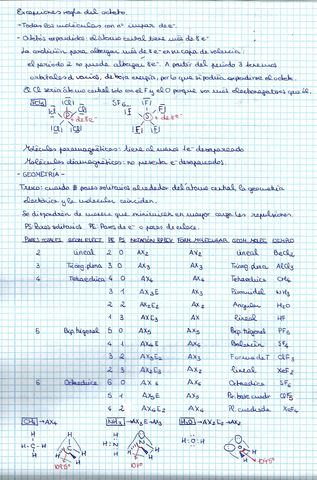 Excepciones regla del octeto.
- Todas las moléculas con nº impar de e⁻
- Octetos expandidos: el átomo central tiene más de 8 e⁻
La condición para albergar más de 8 e⁻ en su capa de valencia:
el periodo 2 no puede albergar 8e⁻. A partir del periodo 3 tenemos
orbitales d vacíos, de baja energía, por lo que se podría expandirse el octeto.
El Cl sería átomo central solo con el F y el O porque son más electronegativos que él.
PCl5 SF6
+ de 8e⁻ + de 8e⁻
Moléculas paramagnéticas: tiene al menos 1e⁻ desapareado
Moléculas diamagnéticas: no presenta e⁻ desapareados.
- GEOMETRIA -
Truco: cuando # pares solitarios alrededor del átomo central la geometría
electrónica y la molecular coinciden.
Se dispondrán de manera que minimicen en mayor cargo las repulsiones
PS: Pares solitarios PE: Pares de e⁻ o pares de enlace.
PARES TOTALES GEOM. ELECT. PE PS NOTACIÓN RPECV FORM. MOLECULAR GEOM. MOLEC.
2 Lineal 2 0 AX2 AX2 Lineal BeCl2
3 Triang. plana 3 0 AX3 AX3 Triang. plana AlCl3
4 Tetraédrica 4 0 AX4 AX4 Tetraédrica CH4
3 1 AX3E AX3 Piramidal NH3
2 2 AX2E2 AX2 Angular H2O
1 3 AXE3 AX Lineal HF
5 Bip. trigonal 5 0 AX5 AX5 Bip. trigonal PF5
4 1 AX4E AX4 Balancín SF4
3 2 AX3E2 AX3 Forma de T ClF3
2 3 AX2E3 AX2 Lineal XeF2
6 Octaédrica 6 0 AX6 AX6 Octaédrica SF6
5 1 AX5E AX5 Pir. base cuadr ClF5
4 2 AX4E2 AX4 Pl. cuadrada XeF4
CH4 → AX4 NH3 → AX3E → AX3 H2O → AX2E2 → AX2
109'5° 107° 104'5°